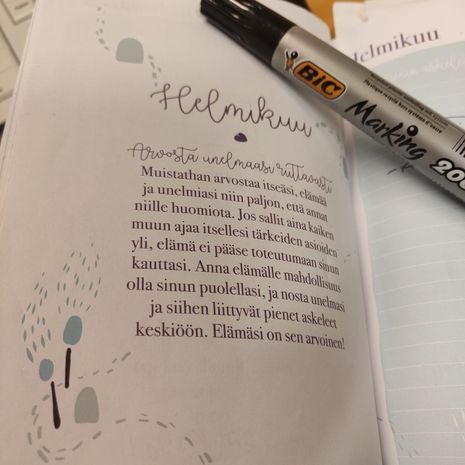 Helmikuu
Arvosta unelmaasi riittävästi
Muistathan arvostaa itseäsi, elämää
ja unelmiasi niin paljon, että annat
niille huomiota. Jos sallit aina kaiken
muun ajaa itsellesi tärkeiden asioiden
yli, elämä ei pääse toteutumaan sinun
kauttasi. Anna elämälle mahdollisuus
olla sinun puolellasi, ja nosta unelmasi
ja siihen liittyvät pienet askeleet
keskiöön. Elämäsi on sen arvoinen!
BIC
Marking 200
Helmikuu